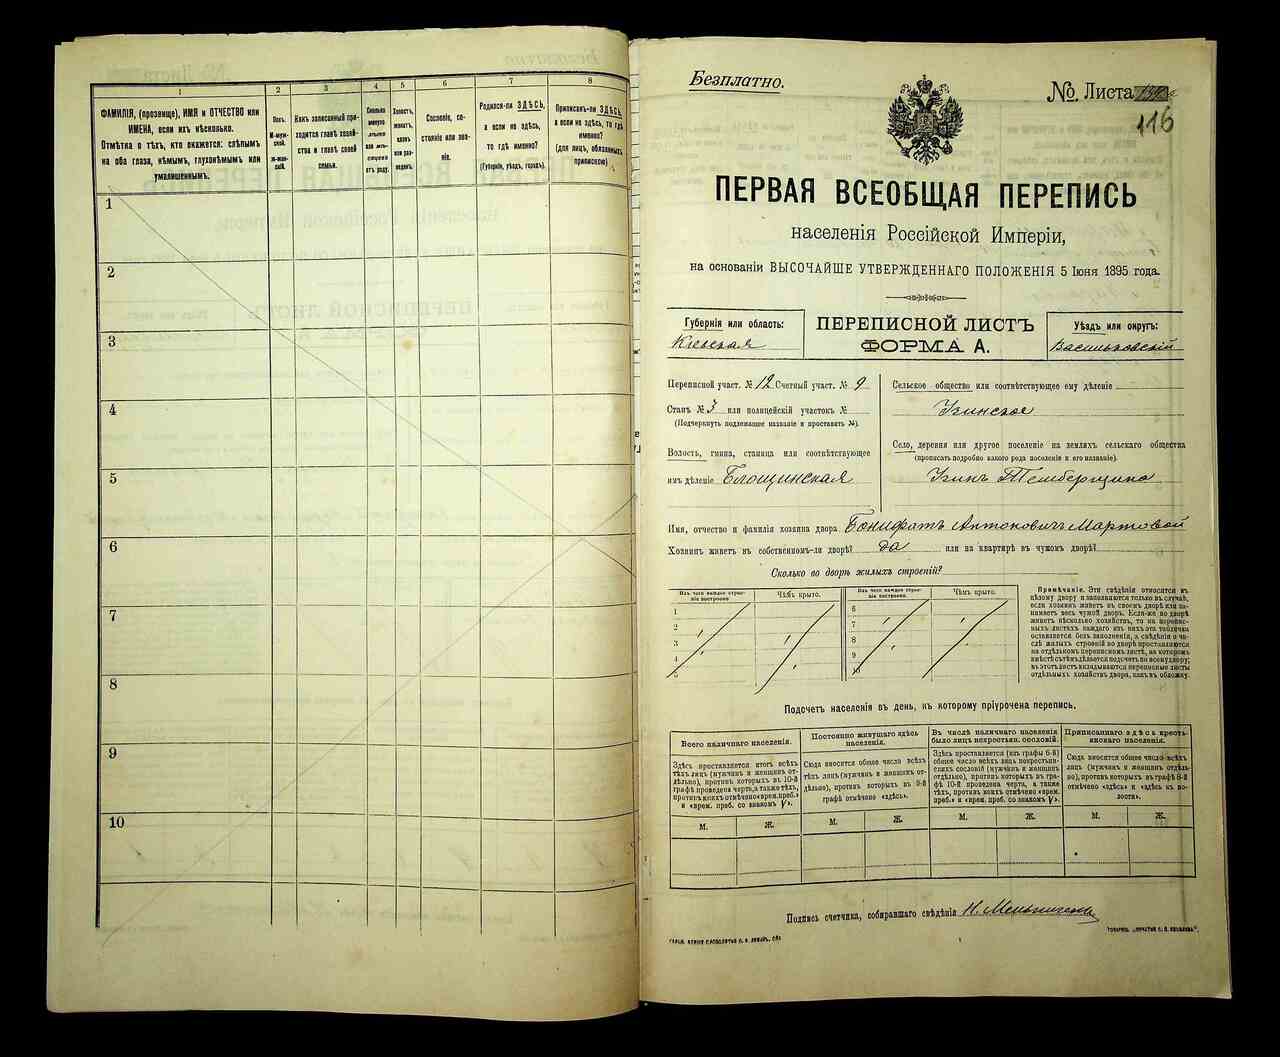 1
2
3
4
5
6
7
8
ФАМИЛІЯ, (прозвище), ИМЯ и ОТЧЕСТВО или
ИМЕНА, если ихъ нѣсколько.
Отмѣтка о тѣхъ, кто окажется: слѣпымъ
на оба глаза, нѣмымъ, глухонѣмымъ или
умалишеннымъ.
Полъ.
М-муж-
ской.
Ж-жен-
скій.
Какъ записанный при-
ходится главѣ хозяй-
ства и главѣ своей
семьи.
Сколько
минуло
лѣтъ
или мѣ-
сяцевъ
отъ роду.
Холостъ,
женатъ,
вдовъ
или раз-
веденъ.
Сословіе, со-
стояніе или зва-
ніе.
Родился-ли ЗДѢСЬ,
а если не здѣсь,
то гдѣ именно?
(Губернія, уѣздъ, городъ).
Приписанъ-ли ЗДѢСЬ,
а если не здѣсь, то гдѣ
именно?
(для лицъ, обязанныхъ
припискою)
1
2
3
4
5
6
7
8
9
10
Безплатно.
№ Листа
116
ПЕРВАЯ ВСЕОБЩАЯ ПЕРЕПИСЬ
населенія Россійской Имперіи,
на основаніи ВЫСОЧАЙШЕ УТВЕРЖДЕННАГО ПОЛОЖЕНІЯ 5 Іюня 1895 года.
Губернія или область:
Кіевская
ПЕРЕПИСНОЙ ЛИСТЪ
ФОРМА А.
Уѣздъ или округъ:
Васильковскій
Переписной участ. № 12 Счетный участ. № 9
Станъ № 3 или полицейскій участокъ №
(Подчеркнуть подлежащее названіе и проставить №).
Волость, гмина, станица или соотвѣтствующее
имъ дѣленіе Блощинская
Сельское общество или соотвѣтствующее ему дѣленіе
Узинское
Село, деревня или другое поселеніе на земляхъ сельскаго общества
(прописать подробно какого рода поселеніе и его названіе).
Узинъ Темберщина
Имя, отчество и фамилія хозяина двора Бонифатъ Антоновичъ Мартовой
Хозяинъ живетъ въ собственномъ-ли дворѣ? да или на квартирѣ въ чужомъ дворѣ?
Сколько во дворѣ жилыхъ строеній?
Изъ чего каждое строе-
ніе построено.
Чѣмъ крыто.
1
2
3
4
5
Изъ чего каждое строе-
ніе построено.
Чѣмъ крыто.
6
7
8
9
10
Примѣчаніе. Эти свѣдѣнія относятся къ
цѣлому двору и заполняются только въ случаѣ,
если хозяинъ живетъ въ своемъ дворѣ или за-
нимаетъ весь чужой дворъ. Если-же во дворѣ
живетъ нѣсколько хозяйствъ, то на перепис-
ныхъ листахъ каждаго изъ нихъ эта табличка
оставляется безъ заполненія, а свѣдѣнія о чи-
слѣ жилыхъ строеній во дворѣ проставляются
на отдѣльномъ переписномъ листѣ, на которомъ
вмѣстѣ съ тѣмъ дѣлается подсчетъ по всему двору;
въ этотъ листъ вкладываются переписные листы
отдѣльныхъ хозяйствъ двора, какъ въ обложку.
Подсчетъ населенія въ день, къ которому пріурочена перепись.
Всего наличнаго населенія.
Здѣсь проставляется итогъ всѣхъ
тѣхъ лицъ (мужчинъ и женщинъ от-
дѣльно), противъ которыхъ въ 10-й
графѣ проведена черта, а также тѣхъ,
противъ коихъ отмѣчено «врем. преб.»
и «врем. преб. со знакомъ V».
Постоянно живущаго здѣсь
населенія.
Сюда вносится общее число всѣхъ
тѣхъ лицъ (мужчинъ и женщинъ от-
дѣльно), противъ которыхъ въ 9-й
графѣ отмѣчено «здѣсь».
Въ числѣ наличнаго населенія
было лицъ некрестьян. сословій.
Здѣсь проставляется (изъ графы 6-й)
общее число всѣхъ лицъ некрестьян-
скихъ сословій (мужчинъ и женщинъ
отдѣльно), противъ которыхъ въ гра-
фѣ 10-й проведена черта, а также
тѣхъ, противъ коихъ отмѣчено «врем.
преб.» и «врем. преб. со знакомъ V».
Приписаннаго здѣсь кресть-
янскаго населенія.
Сюда вносится общее число всѣхъ
лицъ (мужчинъ и женщинъ отдѣль-
но), противъ которыхъ въ графѣ 8-й
отмѣчено «здѣсь» и «здѣсь къ во-
лости».
М. Ж. М. Ж. М. Ж. М. Ж.
Подпись счетчика, собиравшаго свѣдѣнія